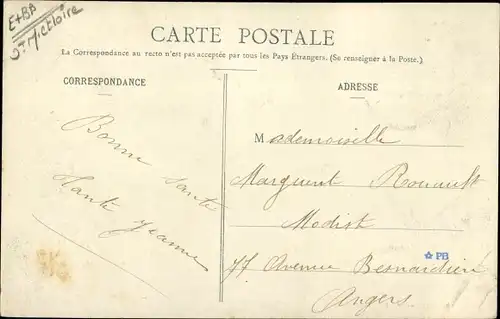 E+BP
St M et Loire
CARTE POSTALE
La Correspondance au recto n'est pas acceptée par tous les Pays Étrangers. (Se renseigner à la Poste.)
CORRESPONDANCE
ADRESSE
Bonne
Santé
Tante Jeanne
Mademoiselle
Marguerit Rouault
Modist
PB
77 Avenue Besnardière
Angers